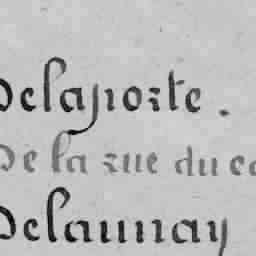 Delaporte.
De la rue du co
Delaunay